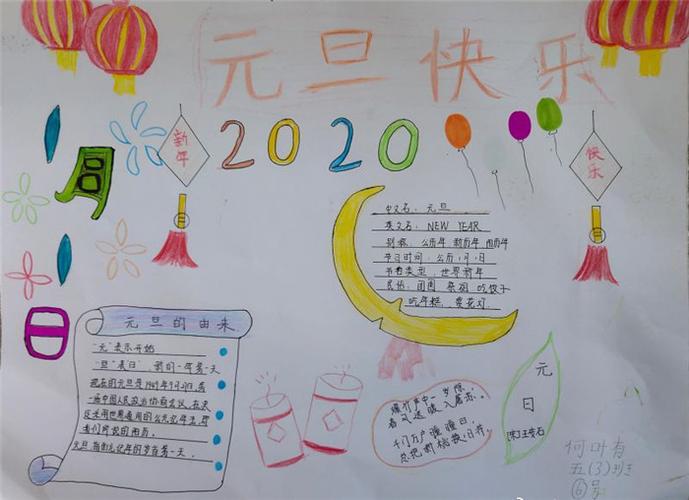 元旦快乐
新年
2020
快乐
1月1日
中文名：元旦
英文名：NEW YEAR
别称：公历年 新历年 阳历年
节日时间：公历1月1日
节日类型：世界新年
民俗：团圆 祭祖 吃饺子
吃年糕 赏花灯
元旦的由来
"元"表示开始
"旦"表"日"，新的一年第一天
现在的元旦是1949年9月27日，第
一届中国人民政治协商会议，在决
我们所说的阳历。
元旦，指公元记年的岁首第一天。
爆竹声中一岁除，
春风送暖入屠苏。
千门万户曈曈日，
总把新桃换旧符。
元
日
[宋]王安石
何叶有
五(3)班
⑥号